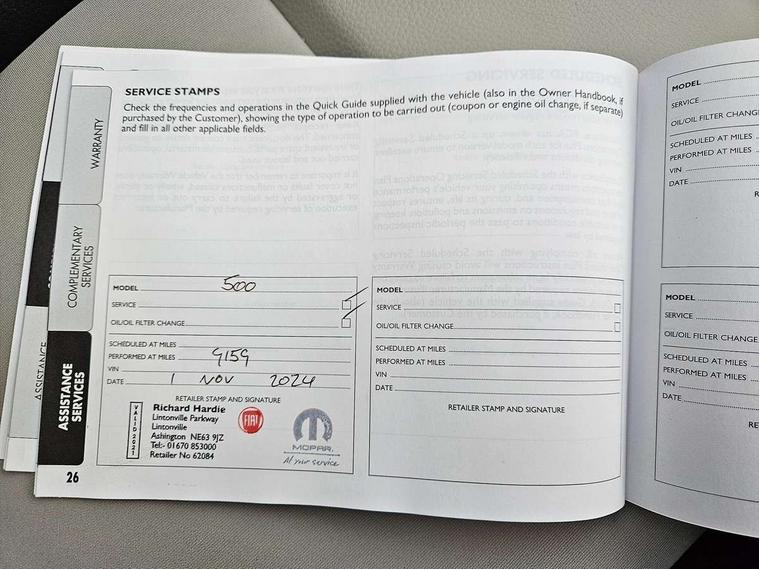 SERVICE STAMPS
Check the frequencies and operations in the Quick Guide supplied with the vehicle (also in the Owner Handbook, if
purchased by the Customer), showing the type of operation to be carried out (coupon or engine oil change, if separate)
and fill in all other applicable fields.
WARRANTY
COMPLEMENTARY
SERVICES
ASSISTANCE
ASSISTANCE
SERVICES
MODEL 500
SERVICE
OIL/OIL FILTER CHANGE
SCHEDULED AT MILES
PERFORMED AT MILES 9159
VIN
DATE 1 NOV 2024
RETAILER STAMP AND SIGNATURE
VALID 2021
Richard Hardie
Lintonville Parkway
Lintonville
Ashington NE63 9JZ
Tel:- 01670 853000
Retailer No 62084
FIAT
MOPAR
At your service
26
MODEL
SERVICE
OIL/OIL FILTER CHANGE
SCHEDULED AT MILES
PERFORMED AT MILES
VIN
DATE
RETAILER STAMP AND SIGNATURE
MODEL
SERVICE
OIL/OIL FILTER CHANGE
SCHEDULED AT MILES
PERFORMED AT MILES
VIN
DATE
MODEL
SERVICE
OIL/OIL FILTER CHANGE
SCHEDULED AT MILES
PERFORMED AT MILES
VIN
DATE
RE